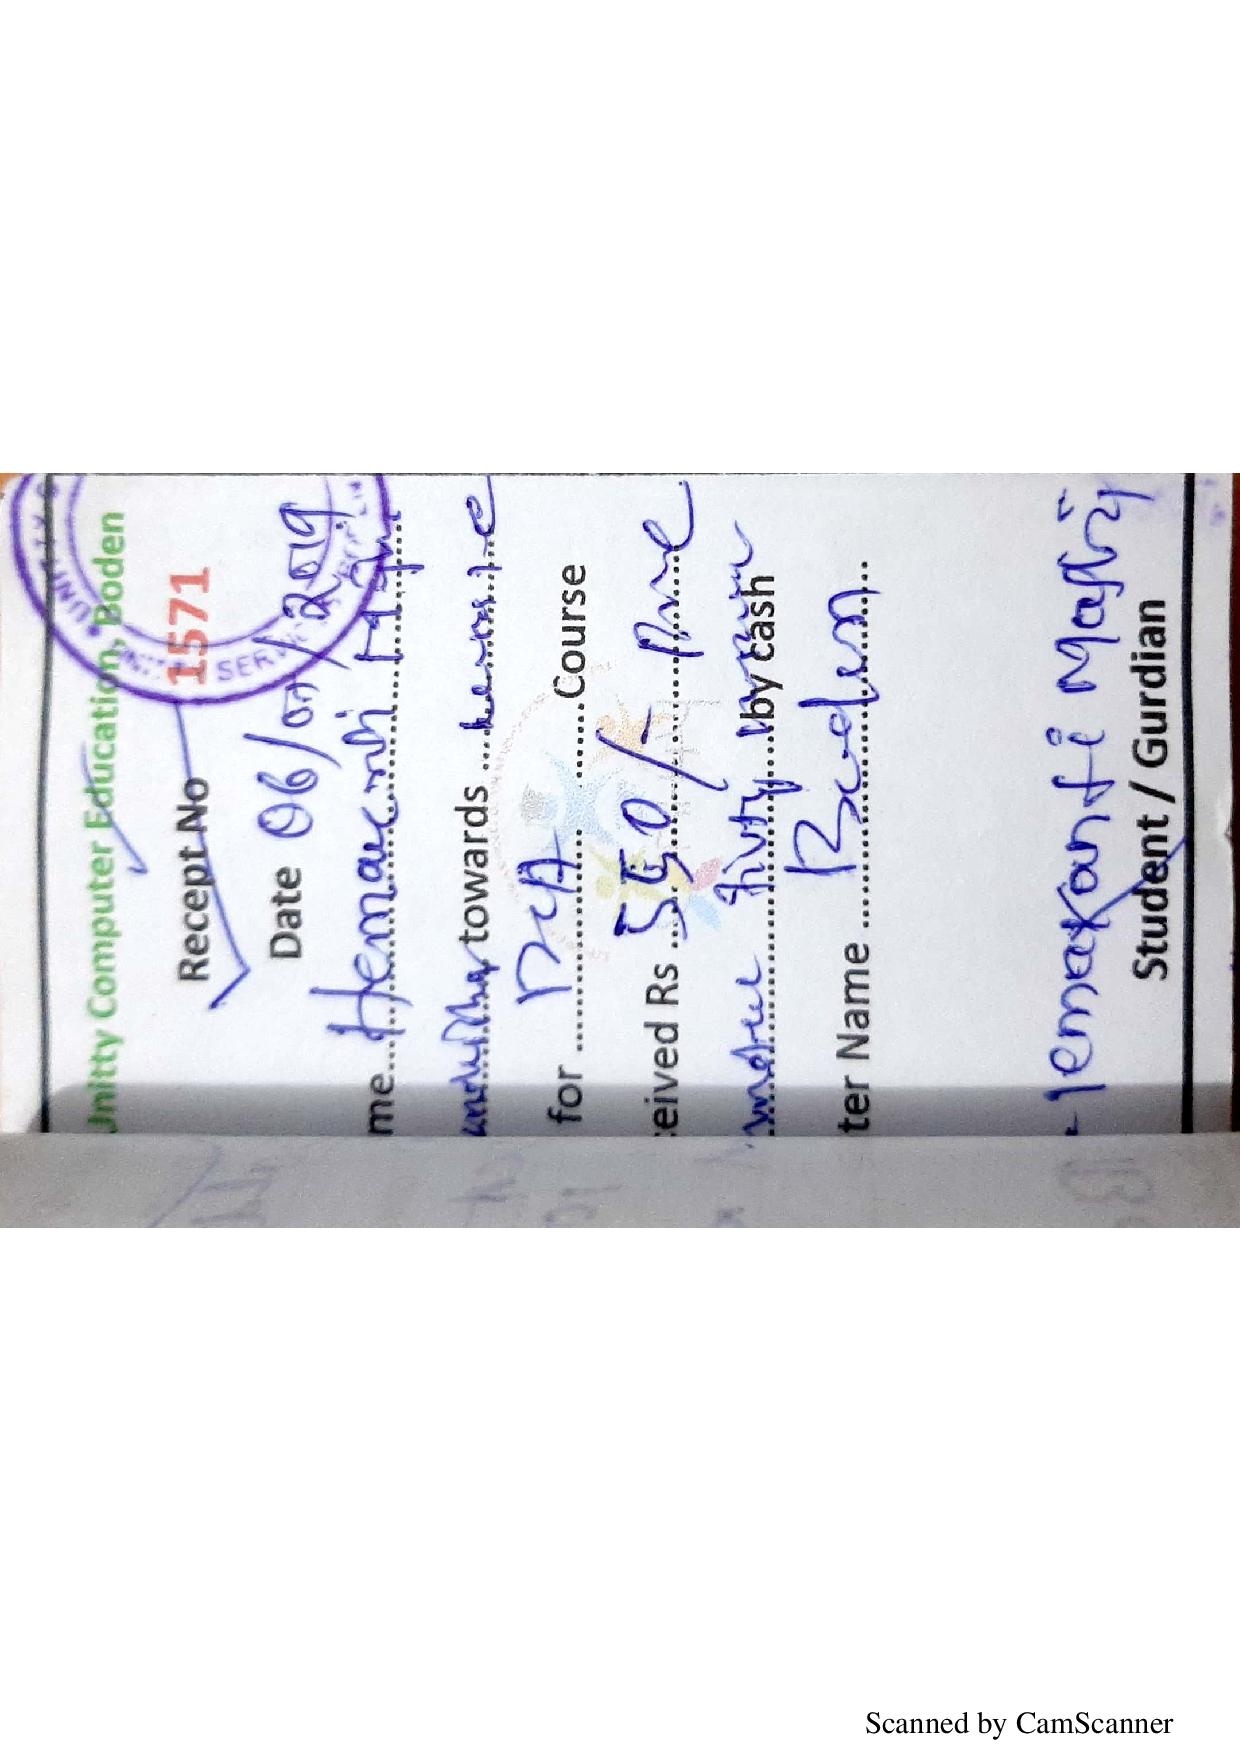 Unitty Computer Education, Boden
Recept No 1571
Date 06/07/2019
me Hemacanti Majhi
towards
for DCA Course
eived Rs 550/- Five
hundred fifty by cash
ter Name Boden
Hemakanti Majhi
Student / Gurdian
Scanned by CamScanner